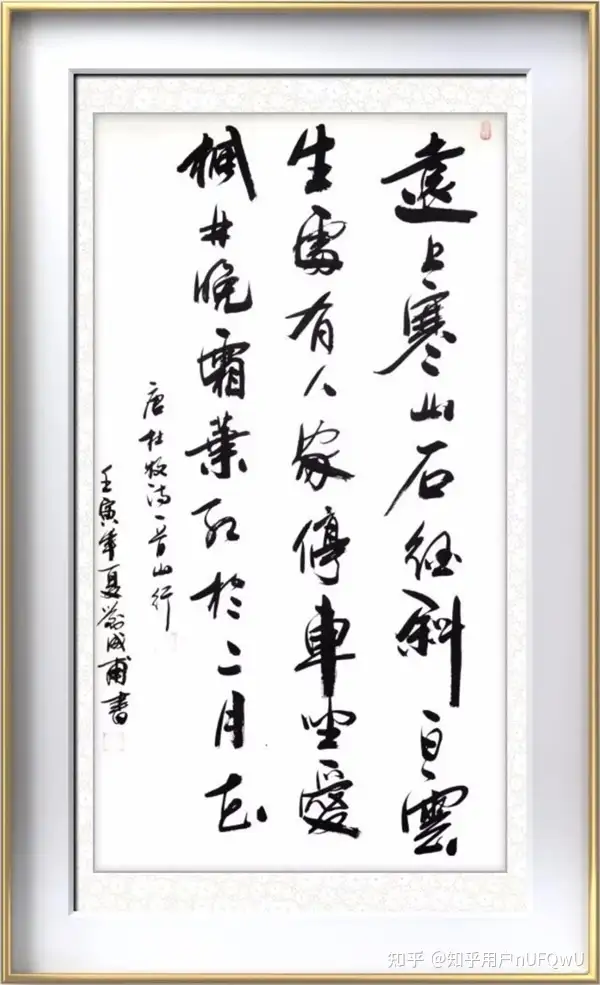 遠上寒山石徑斜白雲
生處有人家停車坐愛
楓林晚霜葉紅於二月花
唐杜牧詩一首山行
壬寅年夏成甫書
知乎 @知乎用户nUFQwU